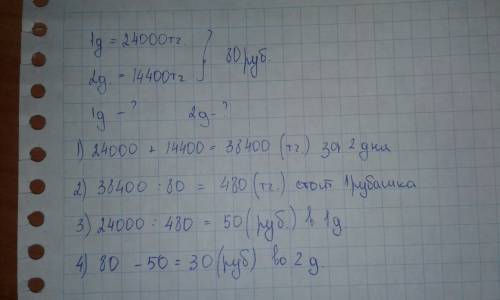 1д = 24000тг. } 80 руб.
2д. = 14400тг
1д - ? 2д - ?
1) 24000 + 14400 = 38400 (тг.) за 2 дня
2) 38400 : 80 = 480 (тг.) стоит 1 рубашка
3) 24000 : 480 = 50 (руб.) в 1д.
4) 80 - 50 = 30 (руб) во 2 д.